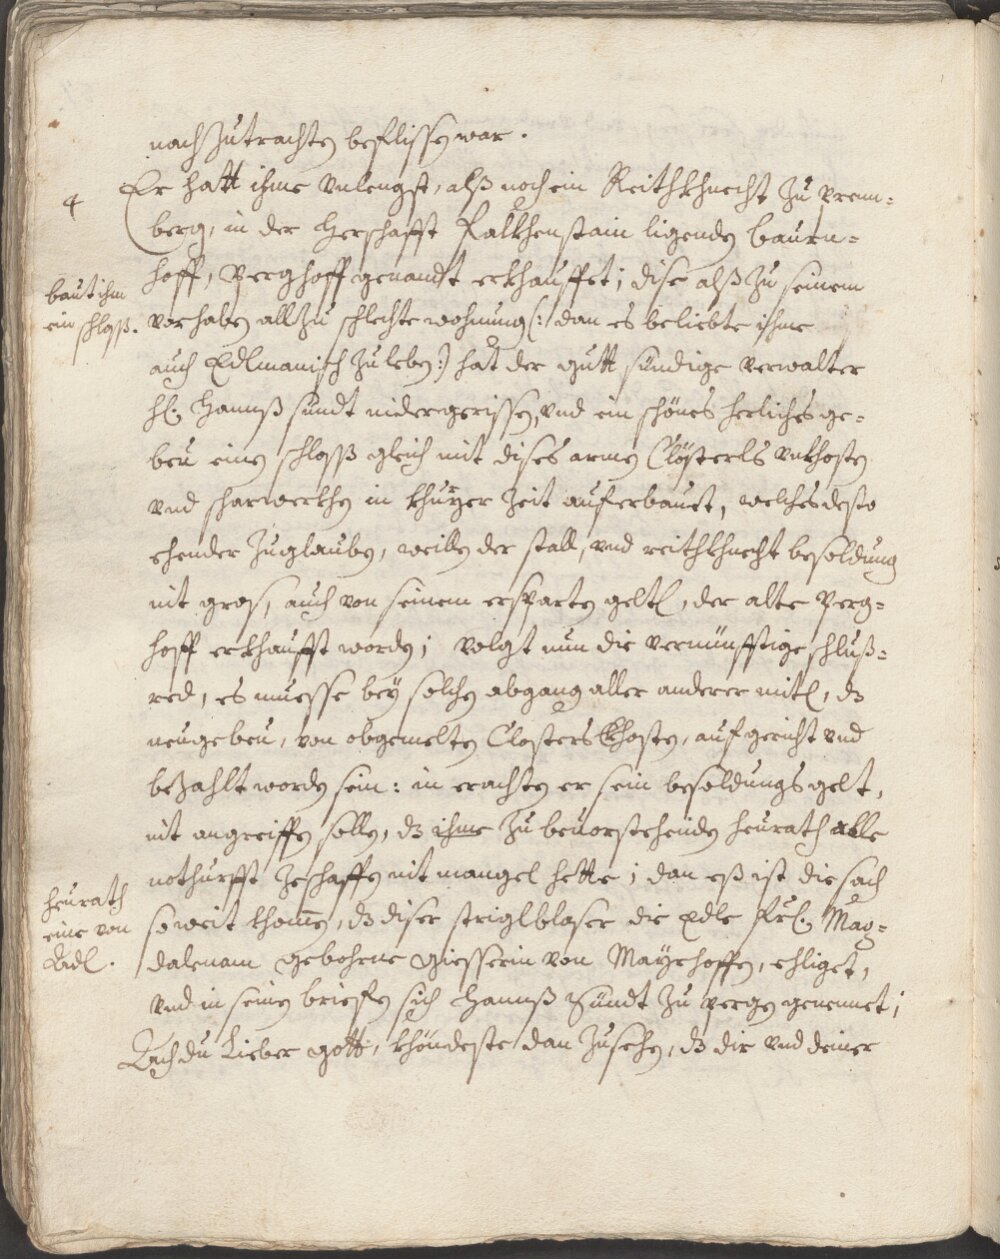 nach Zutrachten beflissen war.
4
Er hatt ihme vnlengst, alß noch ein Reithkhnecht Zu prem=
berg, in der Herschafft Falkhenstain ligenden baurn=
hoff, Perghoff genandt erkhauffet; dise alß Zu seinem
baut ihm
ein schloß.
vorhaben allZu schlechte wohnung (: dan es beliebte ihme
auch Edlmanisch Zuleben :) hat der gutt sündige verwalter
H. Hannß sündt nidergerissen, vnd ein schönes herliches ge=
beu einen schloß gleich mit dises armen Clösterls vnkhosten
vnd scharwerkhen in khurzer Zeit auferbauet, welches desto
ehender Zuglauben, weillen der stall, vnd reithkhnecht besoldung
nit gros, auch von seinem ersparten gelt, der alte Perg=
hoff erkhaufft worden; volgt nun die vernünfftige schluß=
red, es muesse bey solchen abgang aller anderer mitl, dz
neugebeu, von obgemelten Closters Khosten, aufgericht vnd
beZahlt worden sein: in erachten er sein besoldungs gelt,
nit angreiffen sollen, dz ihme Zu beuorstehenden heurath alle
notturfft Zeschaffen nit mangel hette; dan eß ist die sach
heurath
eine von
Adl.
so weit khomen, dz diser striglblaser die edle Frl. Mag=
dalenam gebohrne Giesserin von Mayrhoffen, ehliget,
vnd in seinen briefen sich Hannß Sündt Zu pergen genennet;
Ach du Lieber gott, khöndeste dan Zusehen, dz dir vnd deiner